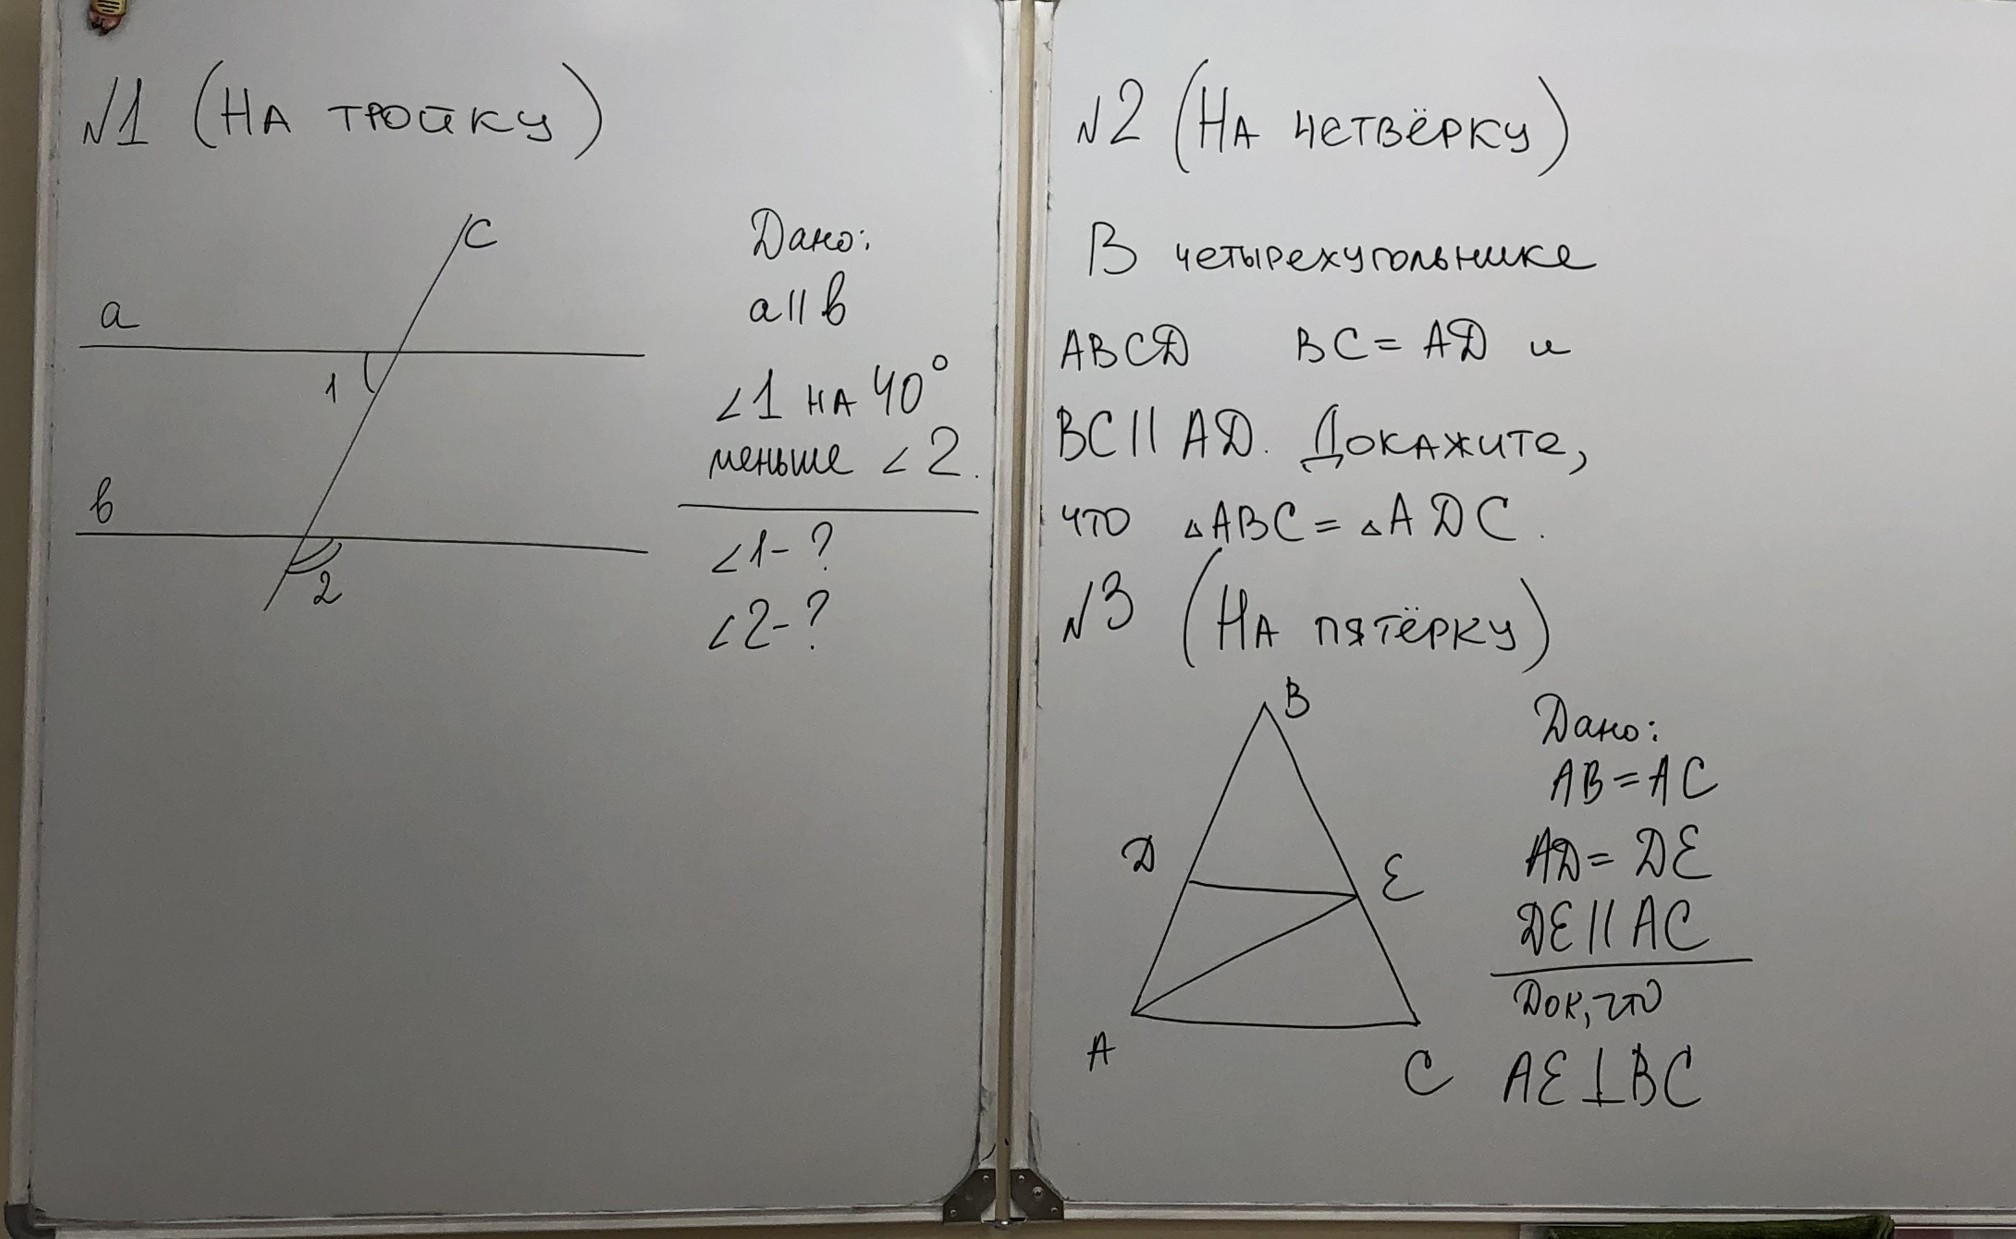 №1 (На тройку)
c
a
1
в
2
Дано:
a || в
∠1 на 40°
меньше ∠2.
∠1 - ?
∠2 - ?
№2 (На четвёрку)
В четырехугольнике
ABCD BC = AD и
BC || AD. Докажите,
что △ABC = △ADC.
№3 (На пятёрку)
B
D
E
A
C
Дано:
AB = AC
AD = DE
DE || AC
Док, что
AE ⊥ BC